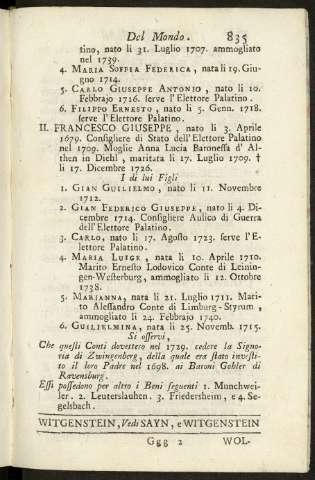 Del Mondo. 835
tino, nato li 31. Luglio 1707. ammogliato
nel 1739.
4. MARIA SOFFIA FEDERICA, nata li 19. Giu-
gno 1714.
5. CARLO GIUSEPPE ANTONIO, nato li 10.
Febbrajo 1716. serve l'Elettore Palatino.
6. FILIPPO ERNESTO, nato li 5. Genn. 1718.
serve l'Elettore Palatino.
II. FRANCESCO GIUSEPPE, nato li 3. Aprile
1679. Consigliere di Stato dell'Elettore Palatino
nel 1709. Moglie Anna Lucia Baronessa d' Al-
then in Diehl, maritata li 17. Luglio 1709. †
li 17. Dicembre 1726.
I di lui Figli
1. GIAN GUILIELMO, nato li 11. Novembre
1712.
2. GIAN FEDERICO GIUSEPPE, nato li 4. Di-
cembre 1714. Consigliere Aulico di Guerra
dell'Elettore Palatino.
3. CARLO, nato li 17. Agosto 1723. serve l'E-
lettore Palatino.
4. MARIA LUIGE, nata li 10. Aprile 1710.
Marito Ernesto Lodovico Conte di Leinin-
gen-Westerburg, ammogliato li 12. Ottobre
1738.
5. MARIANNA, nata li 21. Luglio 1711. Mari-
to Alessandro Conte di Limburg-Styrum,
ammogliato li 24. Febbrajo 1740.
6. GUILIELMINA, nata li 25. Novemb. 1715.
Si osservi,
Che questi Conti dovettero nel 1729. cedere la Signo-
ria di Zwingenberg, della quale era stato investi-
to il loro Padre nel 1698. ai Baroni Gohler di
Ravensburg.
Essi possedono per altro i Beni seguenti 1. Munchwei-
ler. 2. Leuterslauhen. 3. Friedersheim, e 4. Se-
gelsbach.
WITGENSTEIN, Vedi SAYN, e WITGENSTEIN
Ggg 2 WOL-